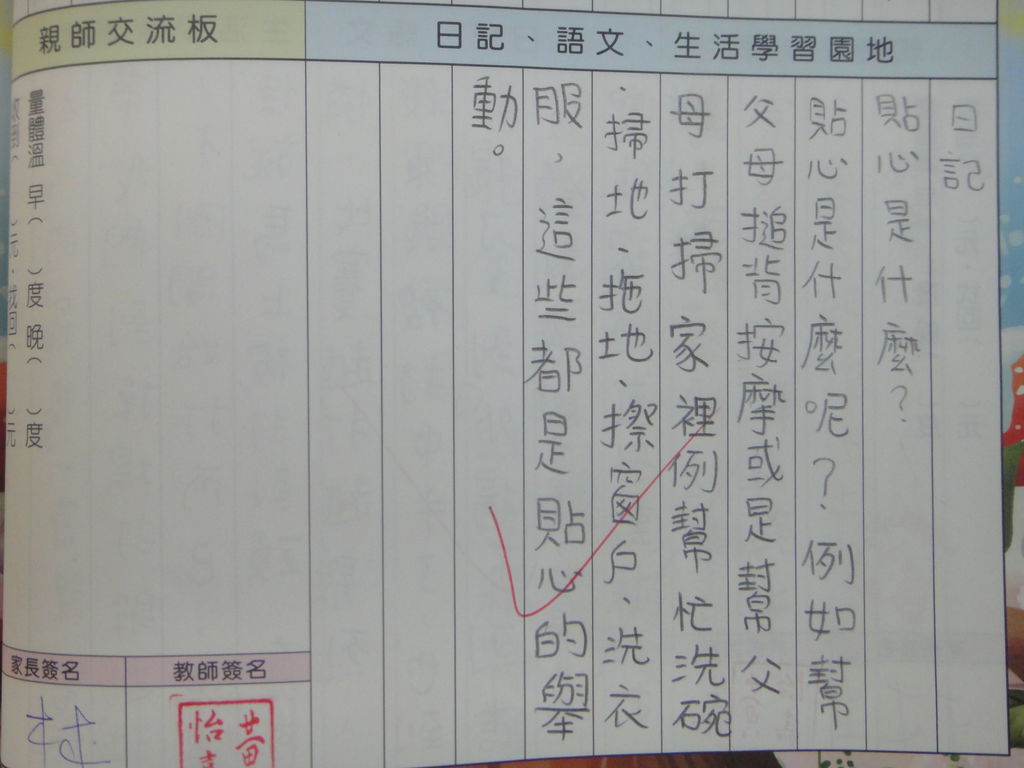 親師交流板
日記、語文、生活學習園地
日記
貼心是什麼?
貼心是什麼呢?例如幫
父母搥背按摩或是幫父
母打掃家裡例幫忙洗碗
、掃地、拖地、擦窗戶、洗衣
服,這些都是貼心的舉
動。
量體溫 早( )度 晚( )度
家長簽名
教師簽名
黃怡